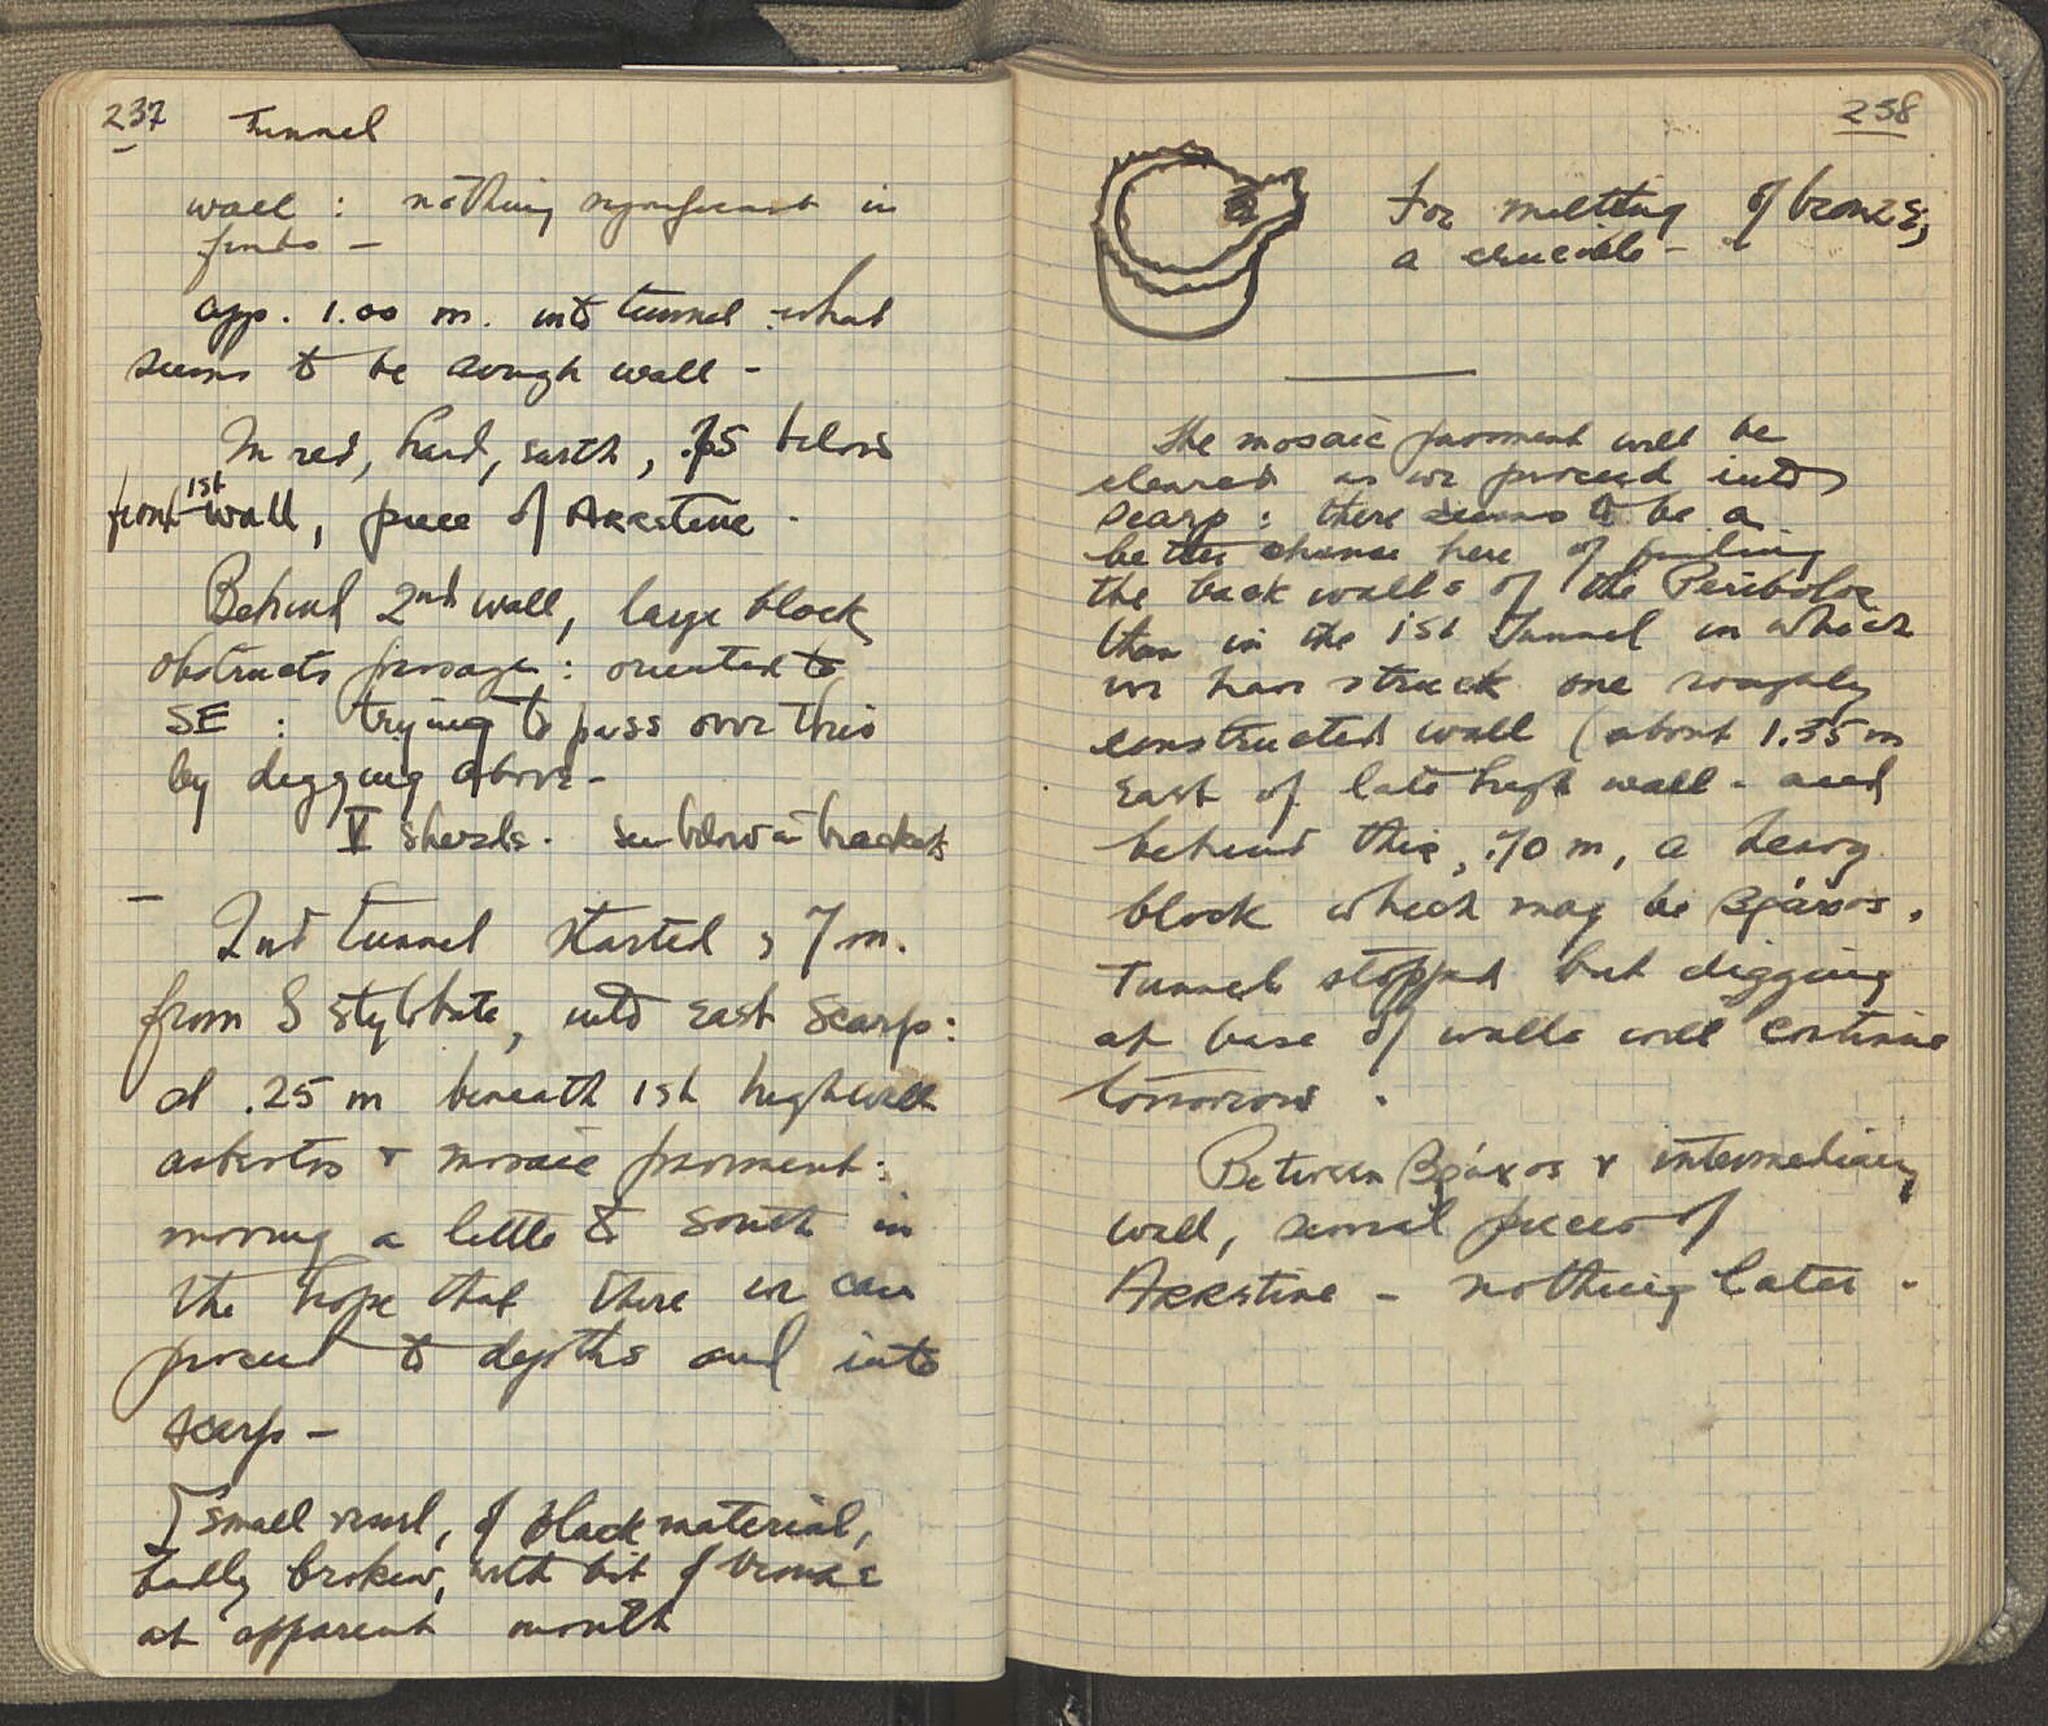 237 Tunnel
wall : nothing significant in
finds —
app. 1.00 m. into tunnel what
seems to be rough wall -
In red, hard, earth, .75 below
front 1st wall, piece of Arretine.
Behind 2nd wall, large block
obstructs passage : oriented to
SE : trying to pass over this
by digging above -
V sherds. see below in brackets
— 2nd tunnel started, 7 m.
from S stylobate, into East scarp:
at .25 m beneath 1st high wall
asbestos & mosaic pavement:
moving a little to south in
the hope that there we can
proceed to depths and into
scarp —
} small vessel, of black material,
badly broken, with bit of bronze
at apparent mouth
238
For melting of bronze;
a crucible -
The mosaic pavement will be
cleared as we proceed into
scarp : there seems to be a
better chance here of finding
the back walls of the Peribolos
than in the 1st Tunnel in which
we have struck one roughly
constructed wall (about 1.35 m
East of late high wall - and
behind this, .70 m, a heavy
block which may be βράχος.
Tunnel stopped but digging
at base of walls will continue
tomorrow.
Between βράχος & intermediary
wall, several pieces of
Arretine - nothing later -